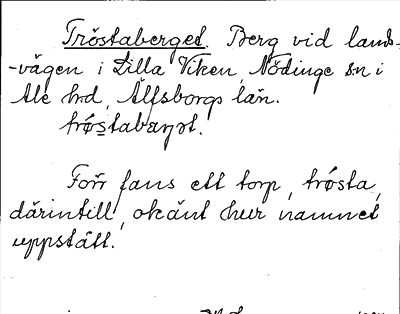 Tröstaberget. Berg vid lands-
-vägen i Lilla Viken, Nödinge sn i
Ale hd, Älfsborgs län.
Förr fans ett torp, trösta,
därintill, okänt hur namnet
uppstått.